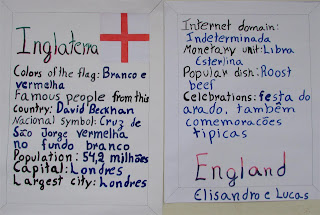 Inglaterra
Colors of the flag: Branco e
vermelha
Famous people from this
country: David Beckhan
Nacional Symbol: Cruz de
São Jorge vermelha
no fundo branco
Population: 54,2 milhões
Capital: Londres
Largest city: Londres
Internet domain:
Indeterminada
Monetary unit: Libra
Esterlina
Popular dish: Roost
beef
Celebrations: festa do
arado, também
comemoracões
tipicas
England
Elisandro e Lucas